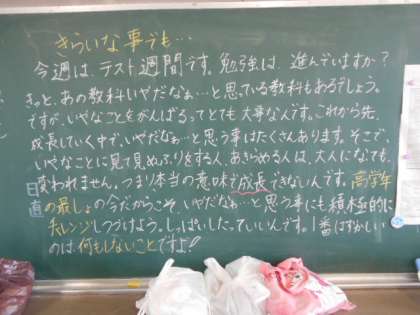 きらいな事でも…
今週は、テスト週間です。勉強は、進んでいますか？
きっと、あの教科いやだなぁ…と思っている教科もあるでしょう。
ですが、いやなことをがんばるってとても大事なんです。これから先、
成長していく中で、いやだなぁ…と思う事はたくさんあります。そこで、
いやなことに見て見ぬふりをする人、あきらめる人は、大人になても
変われません。つまり本当の意味で成長できないんです。高学年
の最しょの今だからこそ、いやだなぁ…と思う事にも積極的に
チャレンジしつづけよう。しっぱいしたっていいんです。1番はずかしい
のは何もしないことですよ!!
日直